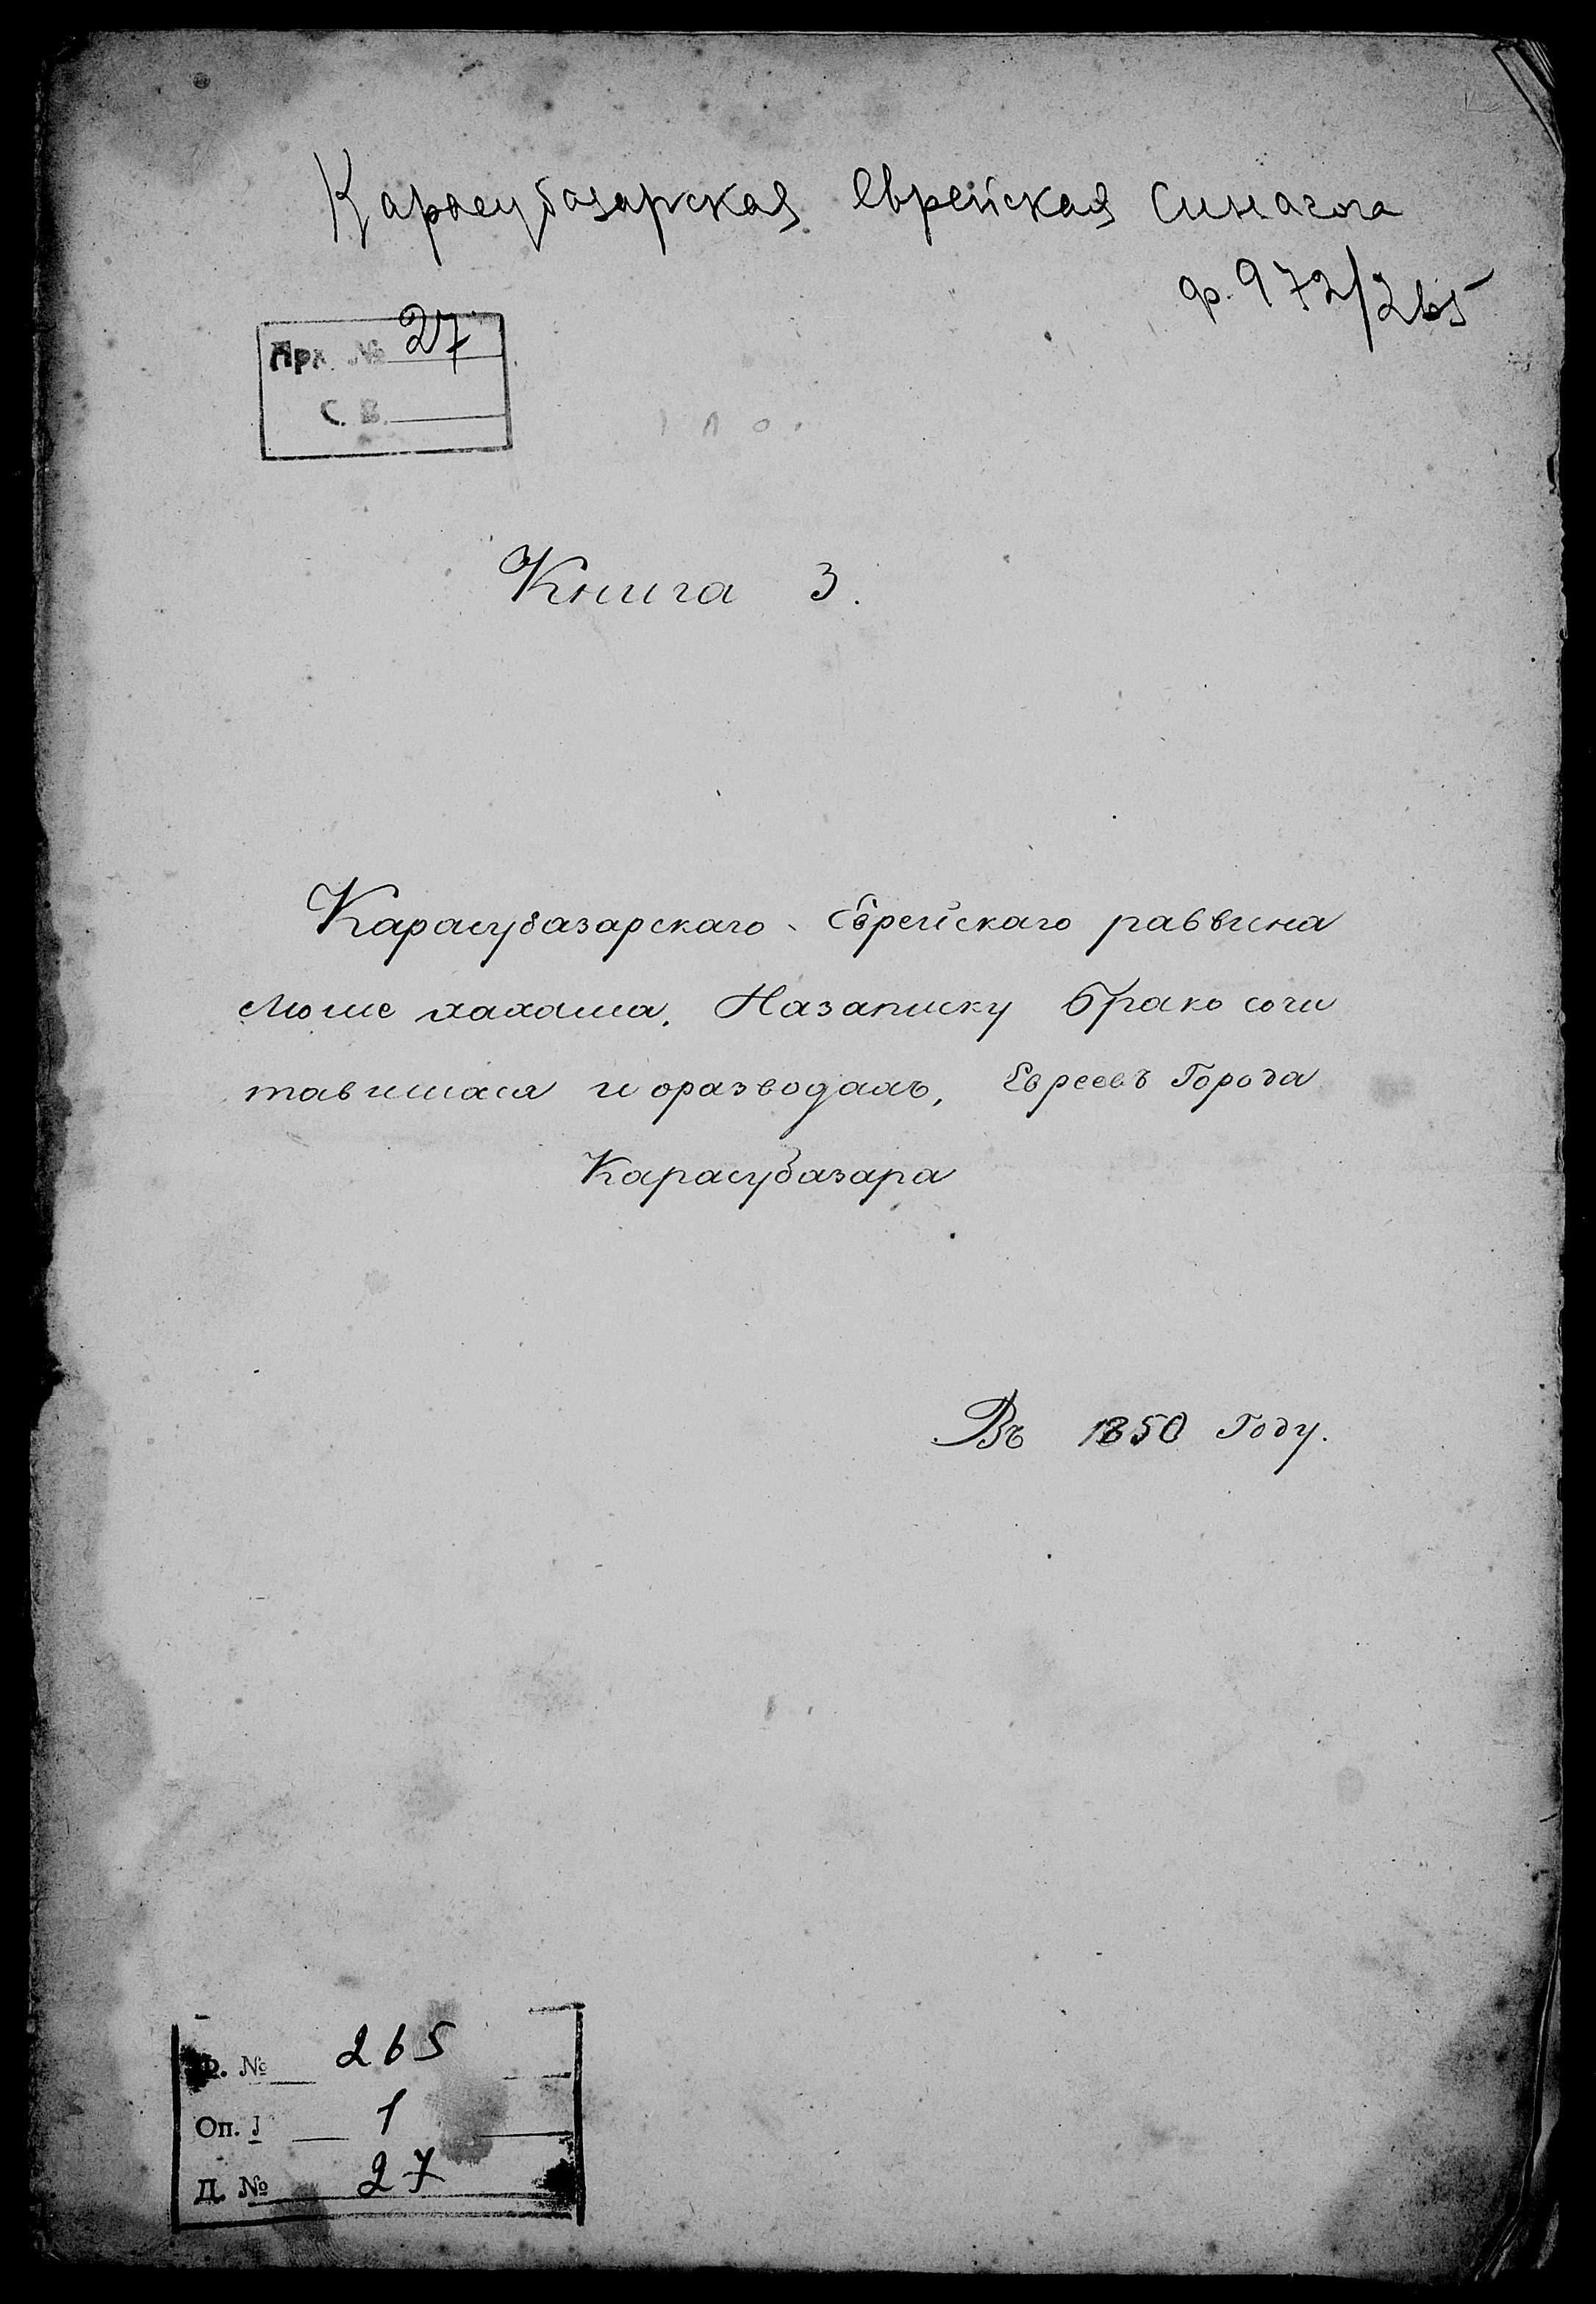 Карасубазарская еврейская синагога
ф. 972/265
Арх. № 27
С. В.
Книга 3.
Карасубазарскаго Еврейскаго раввина
Моше хахама. Назаписку брако сочи
тавшихся и оразводахъ, Евреевъ Города
Карасубазара
Въ 1850 Году.
Ф. № 265
Оп. 1 1
Д. № 27